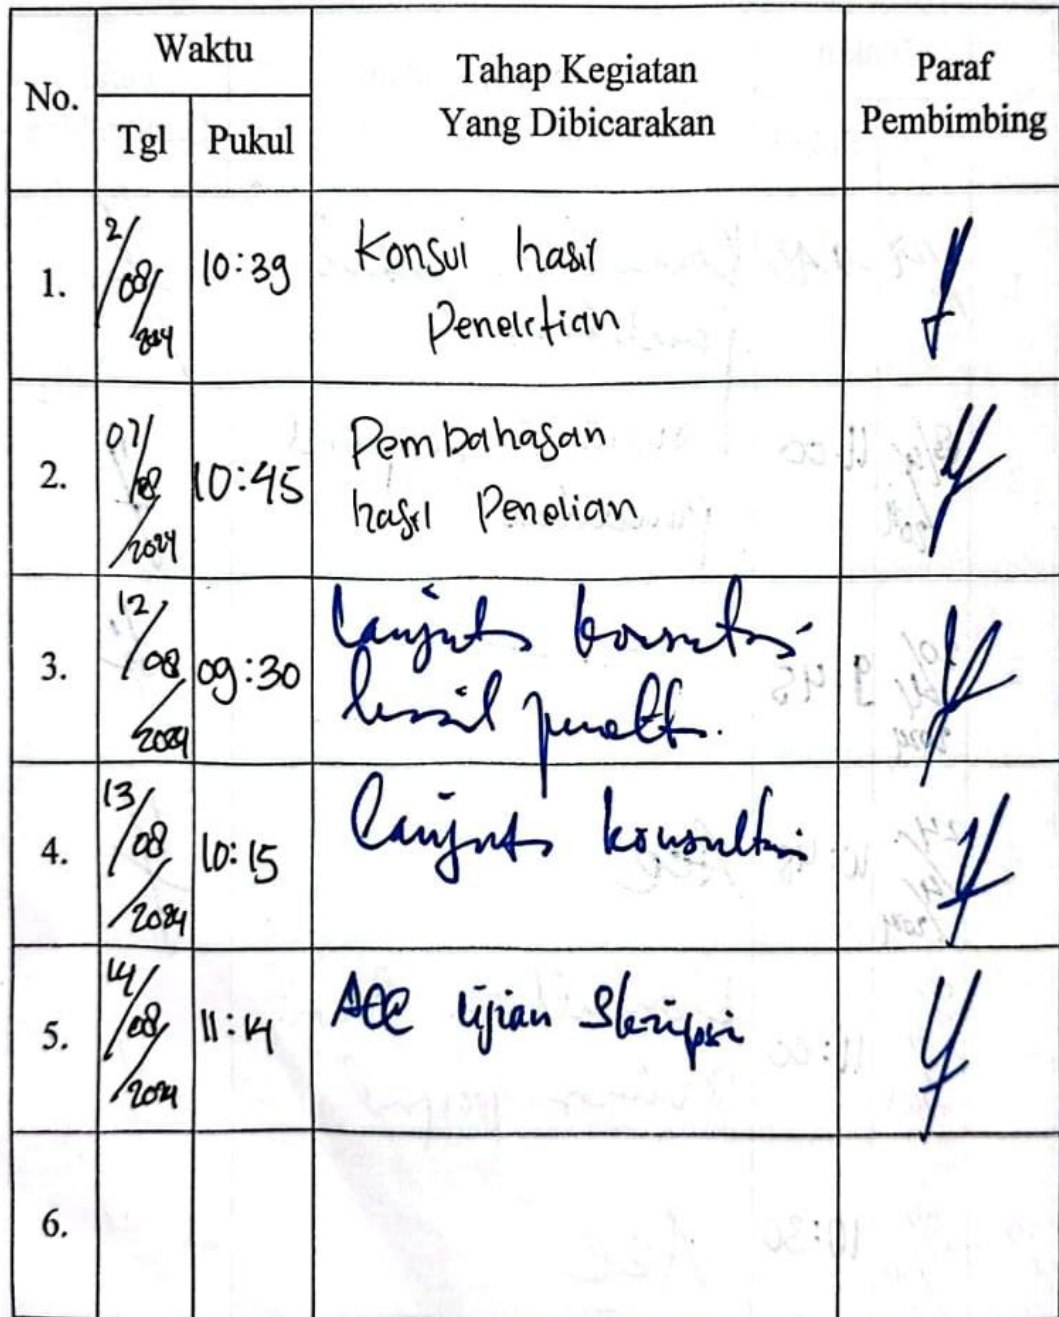 No.
Waktu
Tahap Kegiatan
Yang Dibicarakan
Paraf
Pembimbing
Tgl
Pukul
1.
2/
08/
2024
10:39
Konsul hasil
Penelitian
2.
07/
08
/2024
10:45
Pembahasan
hasil Penelian
3.
12/
08
/2024
09:30
lanjut konsultasi
hasil
4.
13/
08
/2024
10:15
lanjut konsultasi
5.
14/
08/
2024
11:14
ACC Ujian Skripsi
6.